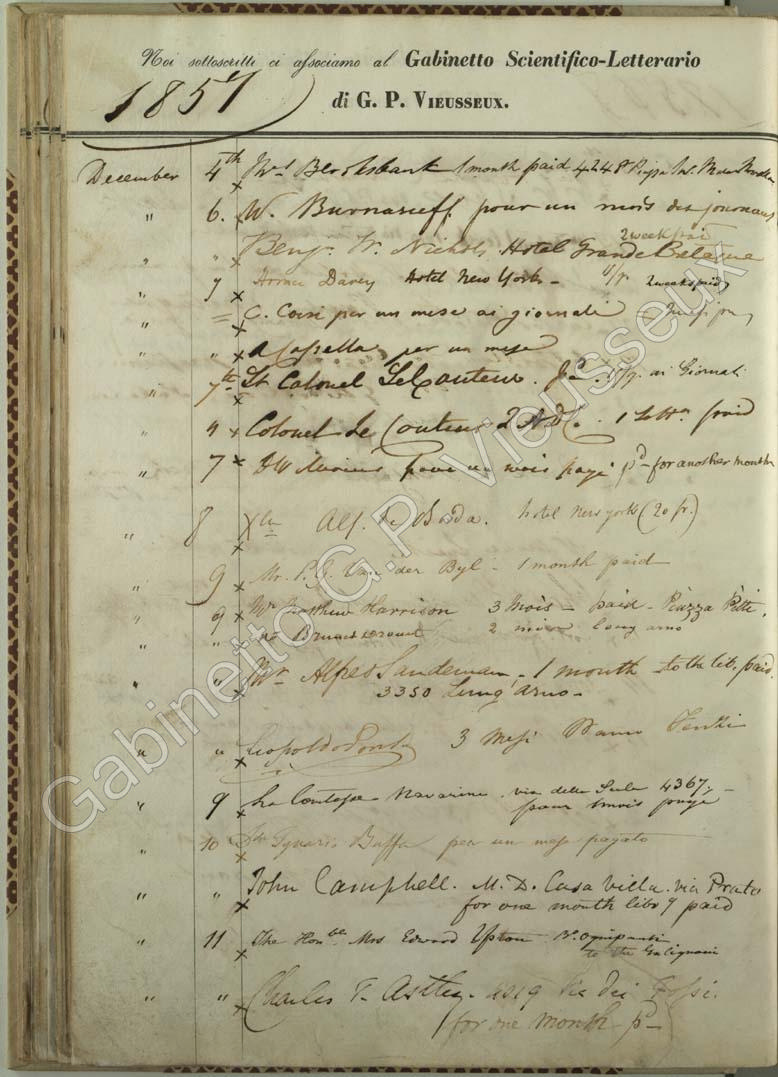 Noi sottoscritti ci associamo al Gabinetto Scientifico-Letterario
1857
di G. P. VIEUSSEUX.
December 4th Mrs Brooksbank 1 month paid 4248 Piazza
" 6. W. pour un mois des journaux
2 week paid
" " Benj. W. Nichols Hotel Grande Bretagne
" 7 Horace Davey Hotel New York - 2 weeks paid
" = C. Corsi per un mese ai giornali =
" " A Casella per un mese
" 7th Lt Colonel LeCouteur. ai Giornali
" " Colonel Le Couteur paid
" 7 pour un mois payé pd for another month
" 8 Alf. de hotel New York (20 fr.)
" 9 Mr. P. G. Van der Byl - 1 month paid
" 9 Mr Matthew Harrison 3 Mois - paid - Piazza Pitti.
" 2 mois lung arno
" " Mr Alfred Sandeman - 1 month - to the lib. paid.
3350 Lung' Arno -
" " Leopoldo 3 Mesi
" 9 La Contessa Navarino. via della Scala 4367. -
pour 1 mois payé
" 10 Buffa per un mese pagato
" " John Campbell. M. D. Casa Villa. via Prato
for one month liby paid
" 11 The Honble Mrs Edward Upton
to the Galignani
" " Charles T. Astley. 4019 Via dei Fossi.
for one month - pd
Gabinetto G.P. Vieusseux